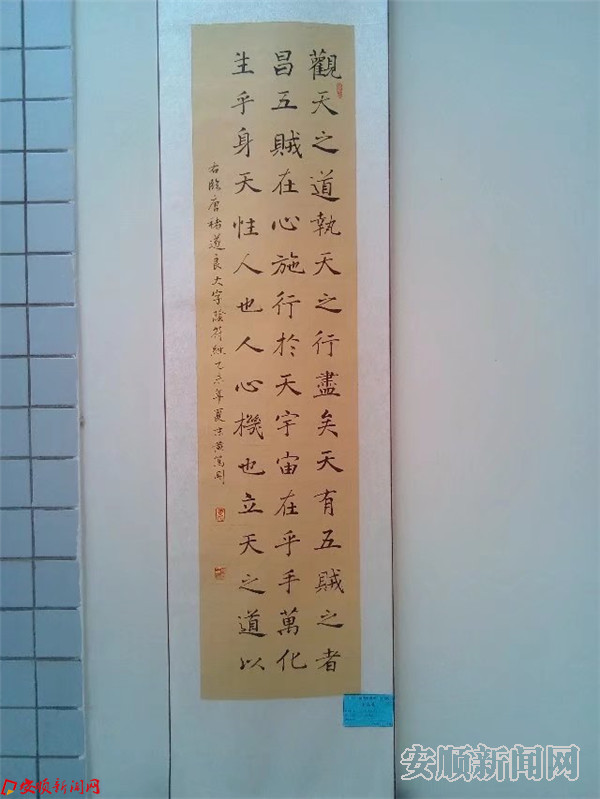 觀天之道執天之行盡矣天有五賊之者
昌五賊在心施行於天宇宙在乎手萬化
生乎身天性人也人心機也立天之道以
右臨唐褚遂良大字陰符經乙未年夏
安顺新闻网
安顺新闻网